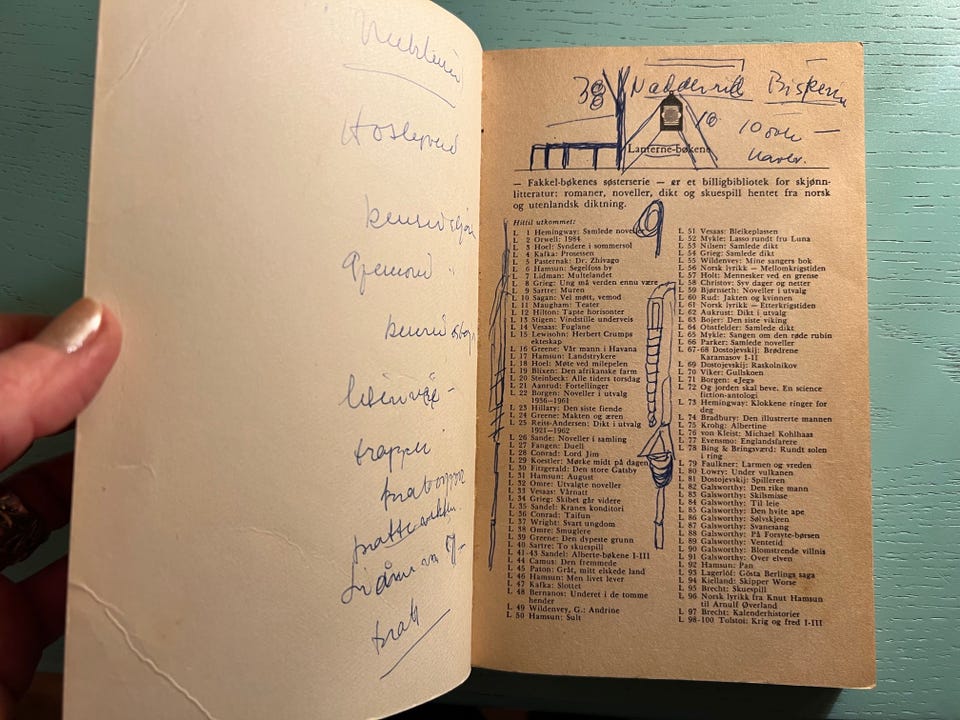 trappe
Lanterne-bøkene
— Fakkel-bøkenes søsterserie — er et billigbibliotek for skjønn-
litteratur: romaner, noveller, dikt og skuespill hentet fra norsk
og utenlandsk diktning.
Hittil utkommet:
L 1 Hemingway: Samlede noveller
L 2 Orwell: 1984
L 3 Hoel: Syndere i sommersol
L 4 Kafka: Prosessen
L 5 Pasternak: Dr. Zhivago
L 6 Hamsun: Segelfoss by
L 7 Lidman: Multelandet
L 8 Grieg: Ung må verden ennu være
L 9 Sartre: Muren
L 10 Sagan: Vel møtt, vemod
L 11 Maugham: Teater
L 12 Hilton: Tapte horisonter
L 13 Stigen: Vindstille underveis
L 14 Vesaas: Fuglane
L 15 Lewisohn: Herbert Crumps
ekteskap
L 16 Greene: Vår mann i Havana
L 17 Hamsun: Landstrykere
L 18 Hoel: Møte ved milepelen
L 19 Blixen: Den afrikanske farm
L 20 Steinbeck: Alle tiders torsdag
L 21 Aanrud: Fortellinger
L 22 Borgen: Noveller i utvalg
1936–1961
L 23 Hillary: Den siste fiende
L 24 Greene: Makten og æren
L 25 Reiss-Andersen: Dikt i utvalg
1921–1962
L 26 Sande: Noveller i samling
L 27 Fangen: Duell
L 28 Conrad: Lord Jim
L 29 Koestler: Mørke midt på dagen
L 30 Fitzgerald: Den store Gatsby
L 31 Hamsun: August
L 32 Omre: Utvalgte noveller
L 33 Vesaas: Vårnatt
L 34 Grieg: Skibet går videre
L 35 Sandel: Kranes konditori
L 36 Conrad: Taifun
L 37 Wright: Svart ungdom
L 38 Omre: Smuglere
L 39 Greene: Den dypeste grunn
L 40 Sartre: To skuespill
L 41-43 Sandel: Alberte-bøkene I-III
L 44 Camus: Den fremmede
L 45 Paton: Gråt, mitt elskede land
L 46 Hamsun: Men livet lever
L 47 Kafka: Slottet
L 48 Bernanos: Underet i de tomme
hender
L 49 Wildenvey, G.: Andrine
L 50 Hamsun: Sult
L 51 Vesaas: Bleikeplassen
L 52 Mykle: Lasso rundt fru Luna
L 53 Nilsen: Samlede dikt
L 54 Grieg: Samlede dikt
L 55 Wildenvey: Mine sangers bok
L 56 Norsk lyrikk — Mellomkrigstiden
L 57 Holt: Mennesker ved en grense
L 58 Christov: Syv dager og netter
L 59 Bjørnseth: Noveller i utvalg
L 60 Rud: Jakten og kvinnen
L 61 Norsk lyrikk — Etterkrigstiden
L 62 Aukrust: Dikt i utvalg
L 63 Bojer: Den siste viking
L 64 Obstfelder: Samlede dikt
L 65 Mykle: Sangen om den røde rubin
L 66 Parker: Samlede noveller
L 67-68 Dostojevskij: Brødrene
Karamasov I-II
L 69 Dostojevskij: Raskolnikov
L 70 Viker: Gullskoen
L 71 Borgen: «Jeg»
L 72 Og jorden skal beve. En science
fiction-antologi
L 73 Hemingway: Klokkene ringer for
deg
L 74 Bradbury: Den illustrerte mannen
L 75 Krohg: Albertine
L 76 von Kleist: Michael Kohlhaas
L 77 Evensmo: Englandsfarere
L 78 Bing & Bringsværd: Rundt solen
i ring
L 79 Faulkner: Larmen og vreden
L 80 Lowry: Under vulkanen
L 81 Dostojevskij: Spilleren
L 82 Galsworthy: Den rike mann
L 83 Galsworthy: Skilsmisse
L 84 Galsworthy: Til leie
L 85 Galsworthy: Den hvite ape
L 86 Galsworthy: Sølvskjeen
L 87 Galsworthy: Svanesang
L 88 Galsworthy: På Forsyte-børsen
L 89 Galsworthy: Ventetid
L 90 Galsworthy: Blomstrende villnis
L 91 Galsworthy: Over elven
L 92 Hamsun: Pan
L 93 Lagerlöf: Gösta Berlings saga
L 94 Kielland: Skipper Worse
L 95 Brecht: Skuespill
L 96 Norsk lyrikk fra Knut Hamsun
til Arnulf Øverland
L 97 Brecht: Kalenderhistorier
L 98-100 Tolstoi: Krig og fred I-III